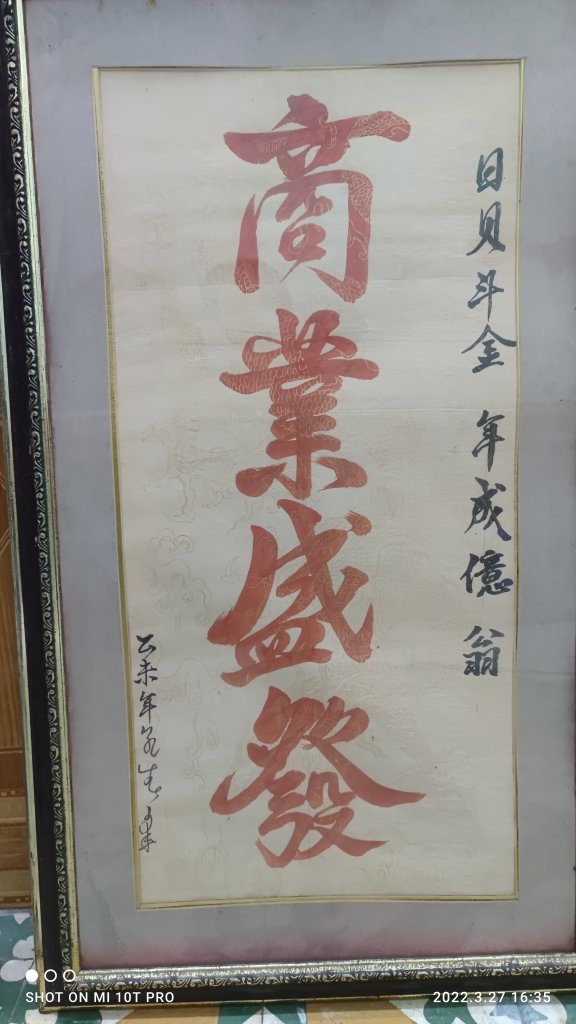 日貝斗金 年成億翁
商業盛發
未年
SHOT ON MI 10T PRO
2022.3.27 16:35